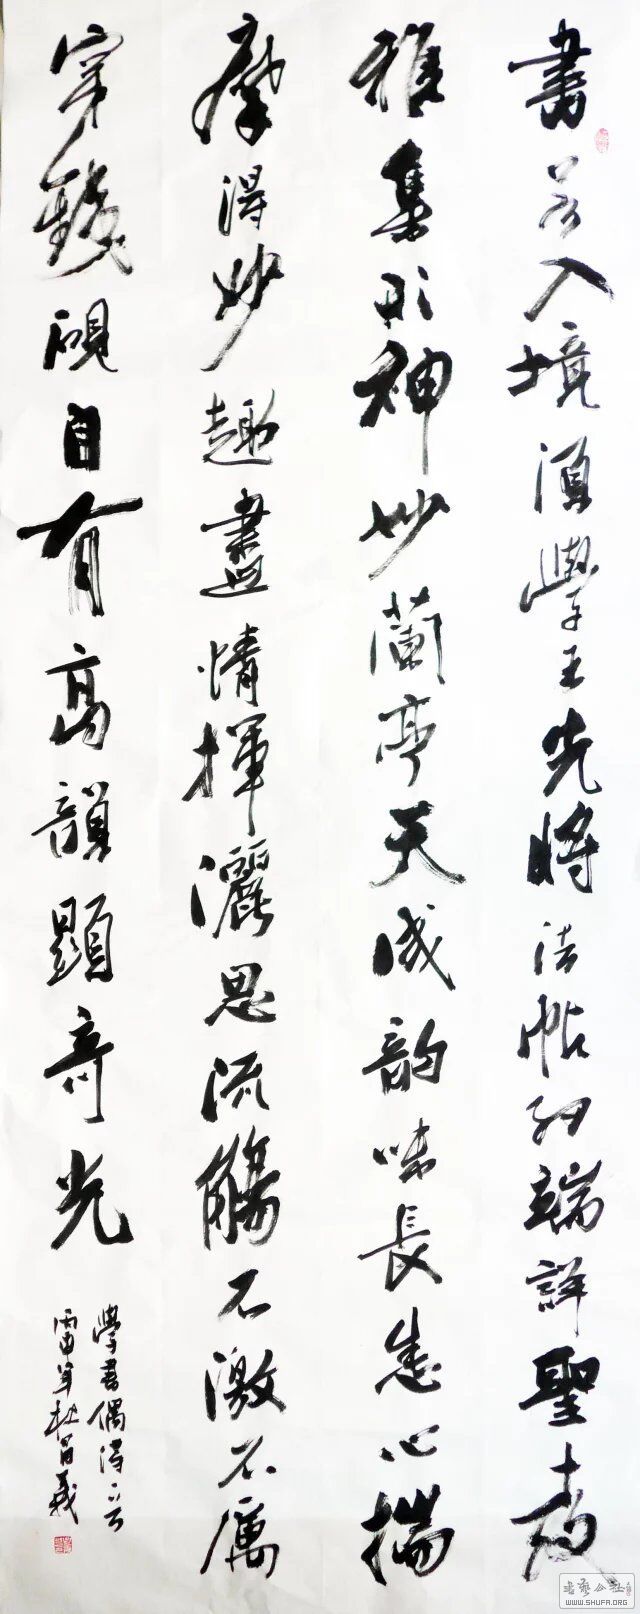 書若入境須學王先將法帖細端詳聖教
雅集形神妙蘭亭天成韵味長悉心揣
摩得妙趣盡情揮灑思流觴不激不厲
穿鐵硯自有高韻顯奇光
學書偶得
書藝公社
WWW.SHUFA.ORG